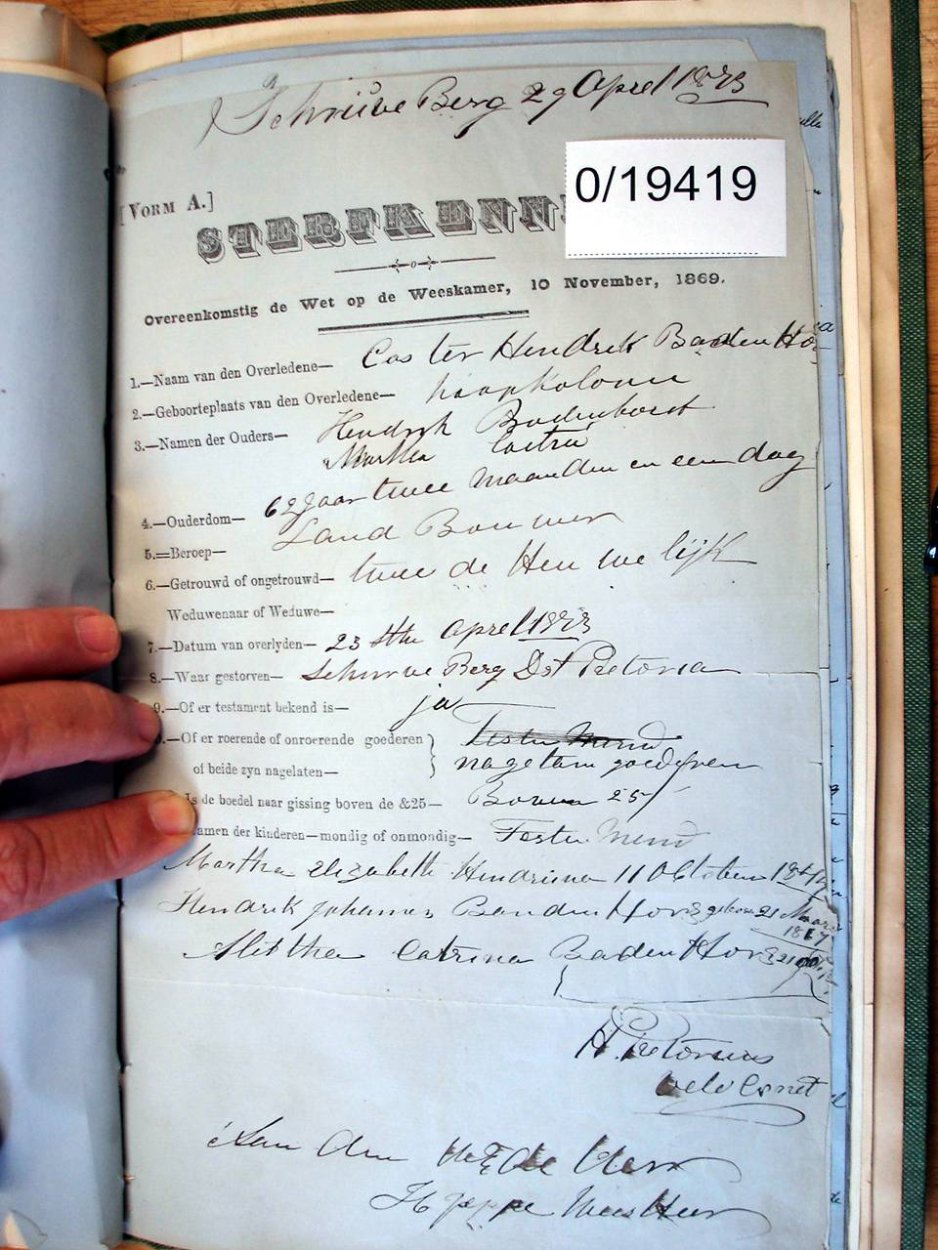 Schurve Berg 29 April 1873
0/19419
[VORM A.]
STERFKENN
Overeenkomstig de Wet op de Weeskamer, 10 November, 1869.
1.—Naam van den Overledene— Caster Hendrik Baden Ho
2.—Geboorteplaats van den Overledene— kaapkolonie
3.—Namen der Ouders— Hendrik Badenhorst
Martha
4.—Ouderdom— 62 Jaar twee maanden en een dag
5.—Beroep— Land Bouwer
6.—Getrouwd of ongetrouwd— twee de Heu we lijk
Weduwenaar of Weduwe—
7.—Datum van overlyden— 23 ste April 1873
8.—Waar gestorven— Schurve Berg Dst Pretoria
9.—Of er testament bekend is— ja
—Of er roerende of onroerende goederen
of beide zyn nagelaten— goederen
Is de boedel naar gissing boven de &25— Boven 25/
amen der kinderen—mondig of onmondig—
Martha Elizabeth Hendrina 11 October
Hendrik Johannes Banden Hors 21
Catrina Baden Hors
H. Pretorius
Veld Cornet
Aan den de Heer
Weesheer